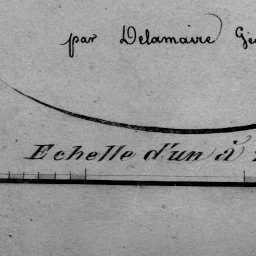 par Delamaire Gé
Echelle d'un à